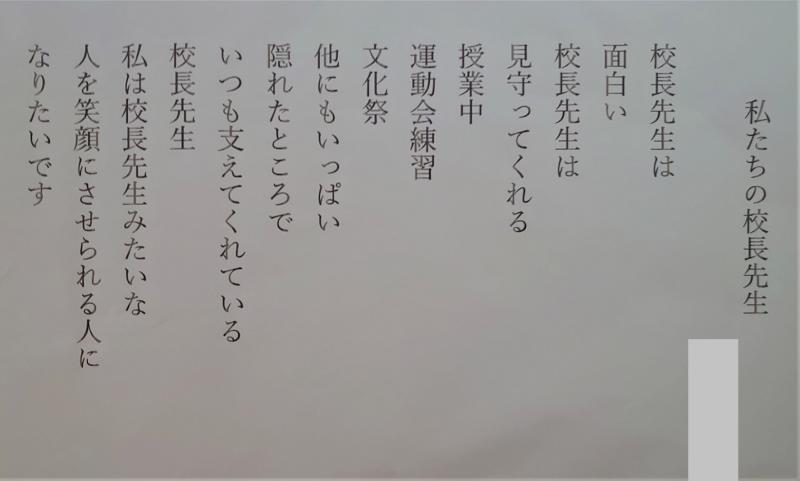 私たちの校長先生
校長先生は
面白い
校長先生は
見守ってくれる
授業中
運動会練習
文化祭
他にもいっぱい
隠れたところで
いつも支えてくれている
校長先生
私は校長先生みたいな
人を笑顔にさせられる人に
なりたいです